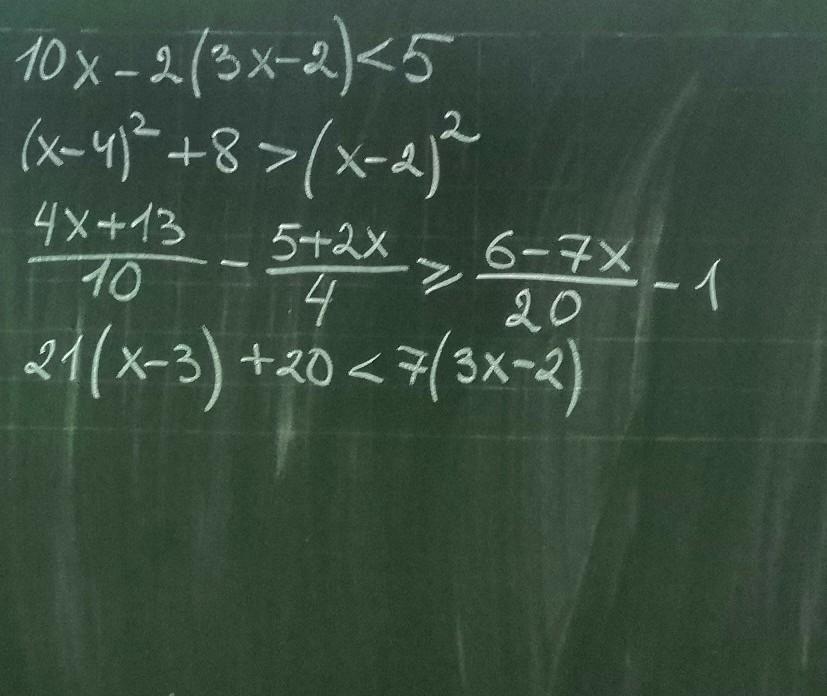 10x-2(3x-2)<5
(x-4)²+8>(x-2)²
(4x+13)/10 - (5+2x)/4 ≥ (6-7x)/20 - 1
21(x-3)+20<7(3x-2)